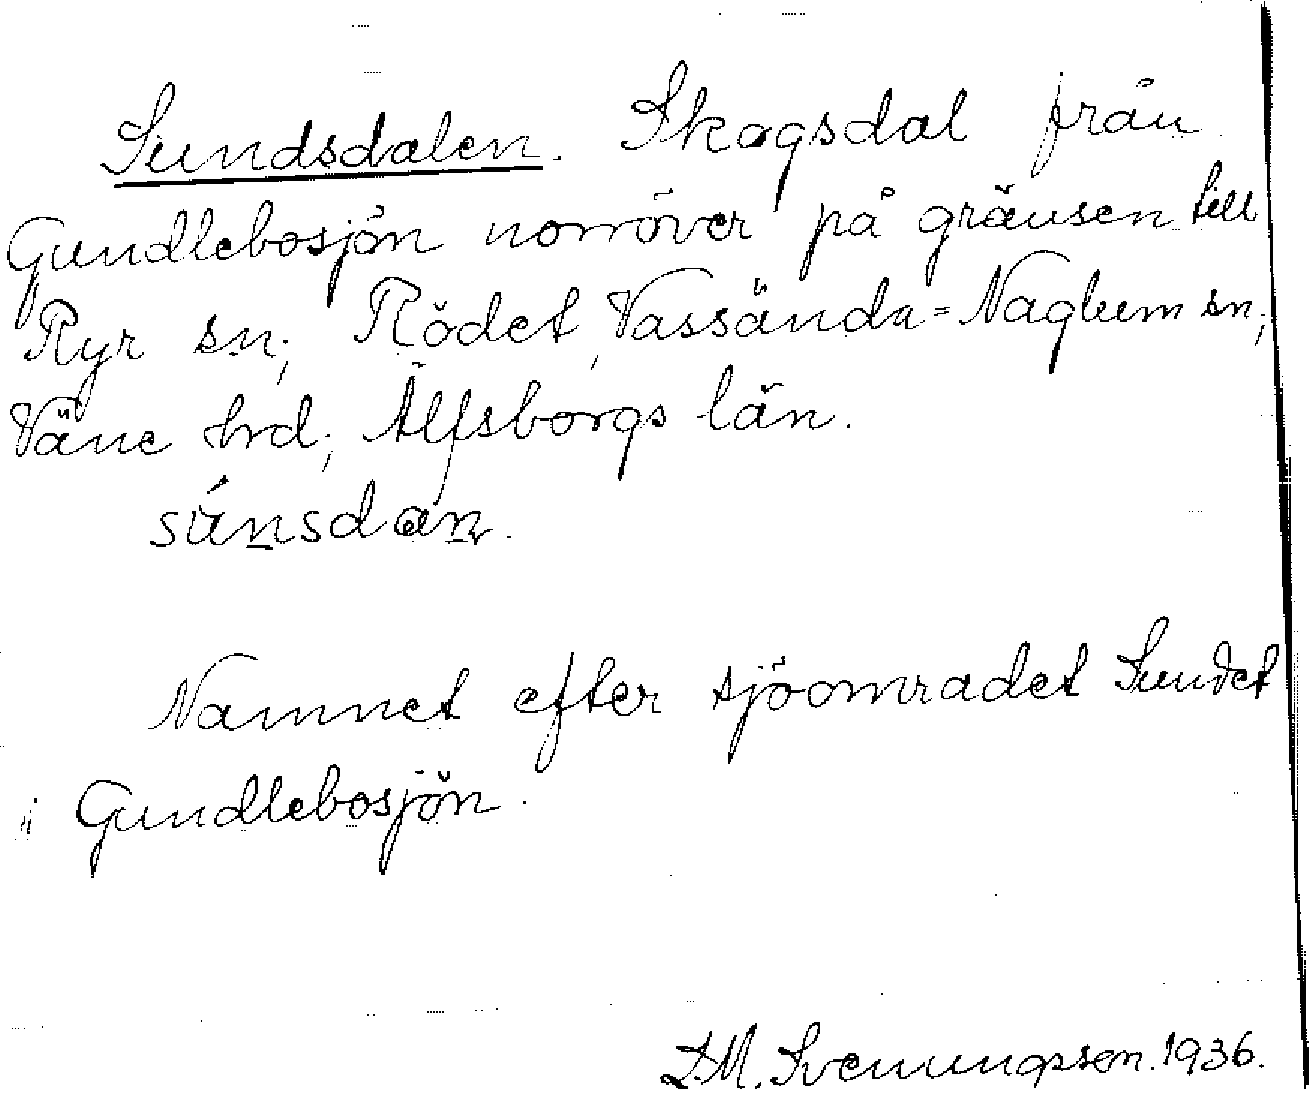 Sundsdalen. Skogsdal från
Gundlebosjön norröver på gränsen till
Ryr sn; Rödet, Vassända=Naglum sn;
Väne hrd; Älfsborgs län.
súnsdan.
Namnet efter sjöområdet Sundet
i Gundlebosjön.
S.M. Svenungsson. 1936.